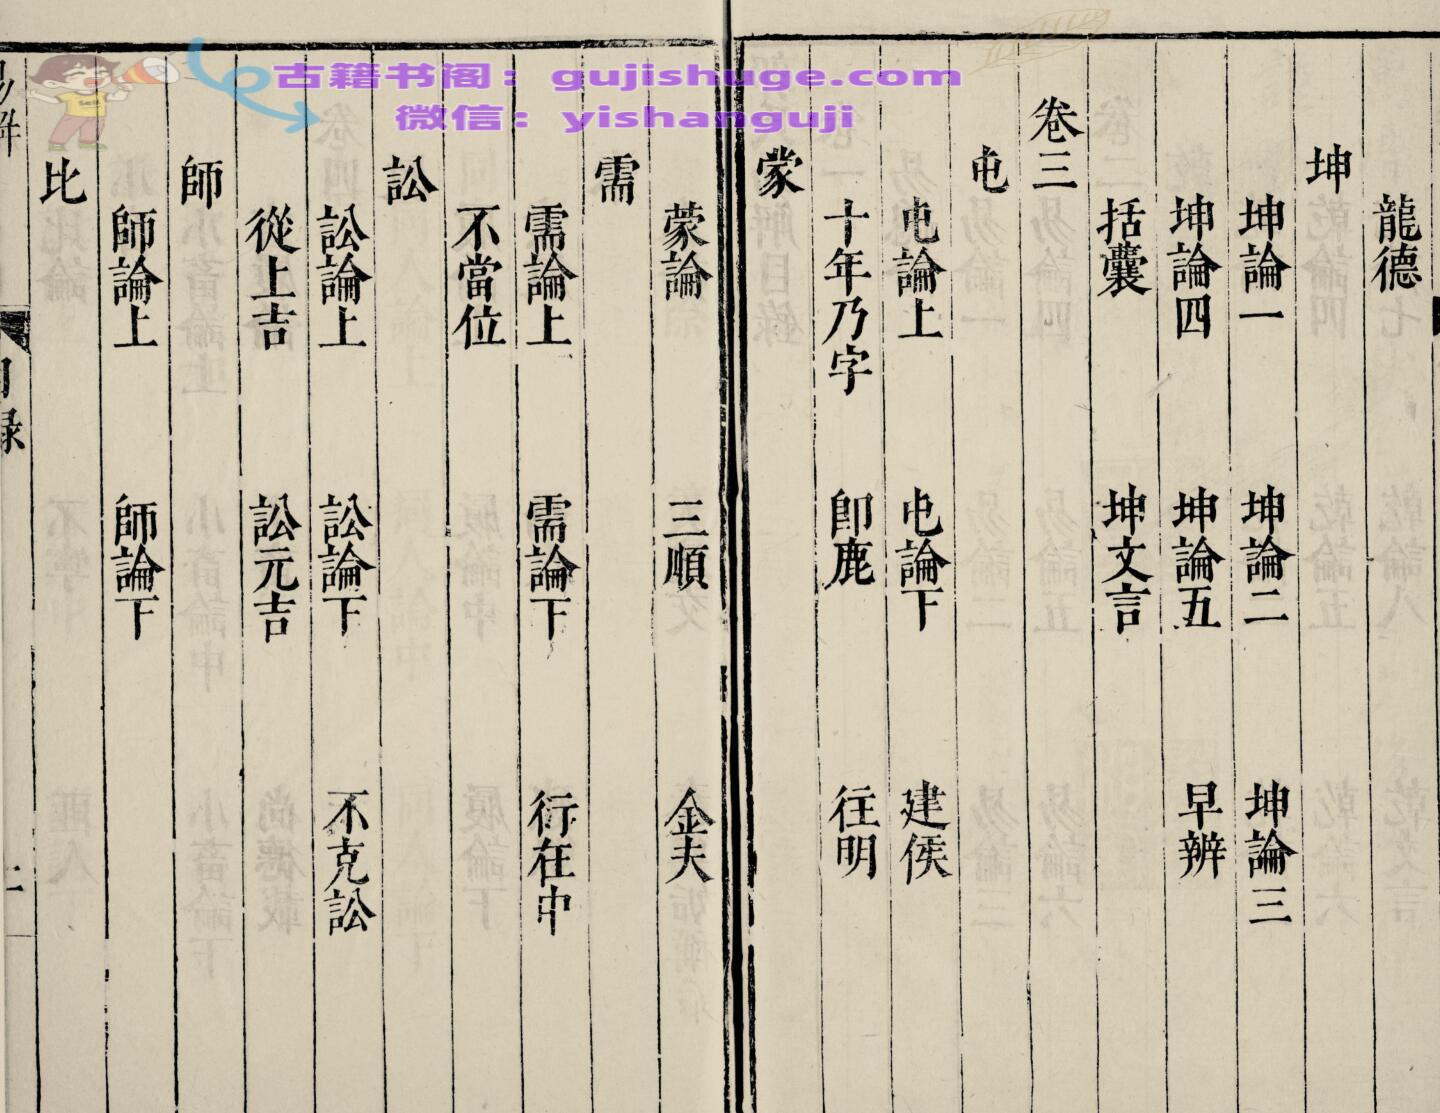 龍德
坤
坤論一 坤論二 坤論三
坤論四 坤論五 早辨
括囊 坤文言
卷三
屯
屯論上 屯論下 建侯
十年乃字 卽鹿 往明
蒙
蒙論 三順 金夫
需
需論上 需論下 衍在中
不當位
訟
訟論上 訟論下 不克訟
從上吉 訟元吉
師
師論上 師論下
比
目錄
古籍书阁：gujishuge.com
微信：yishanguji